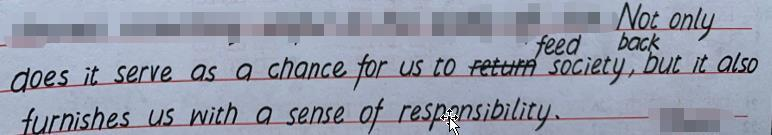 Not only
does it serve as a chance for us to return feed back society, but it also
furnishes us with a sense of responsibility.